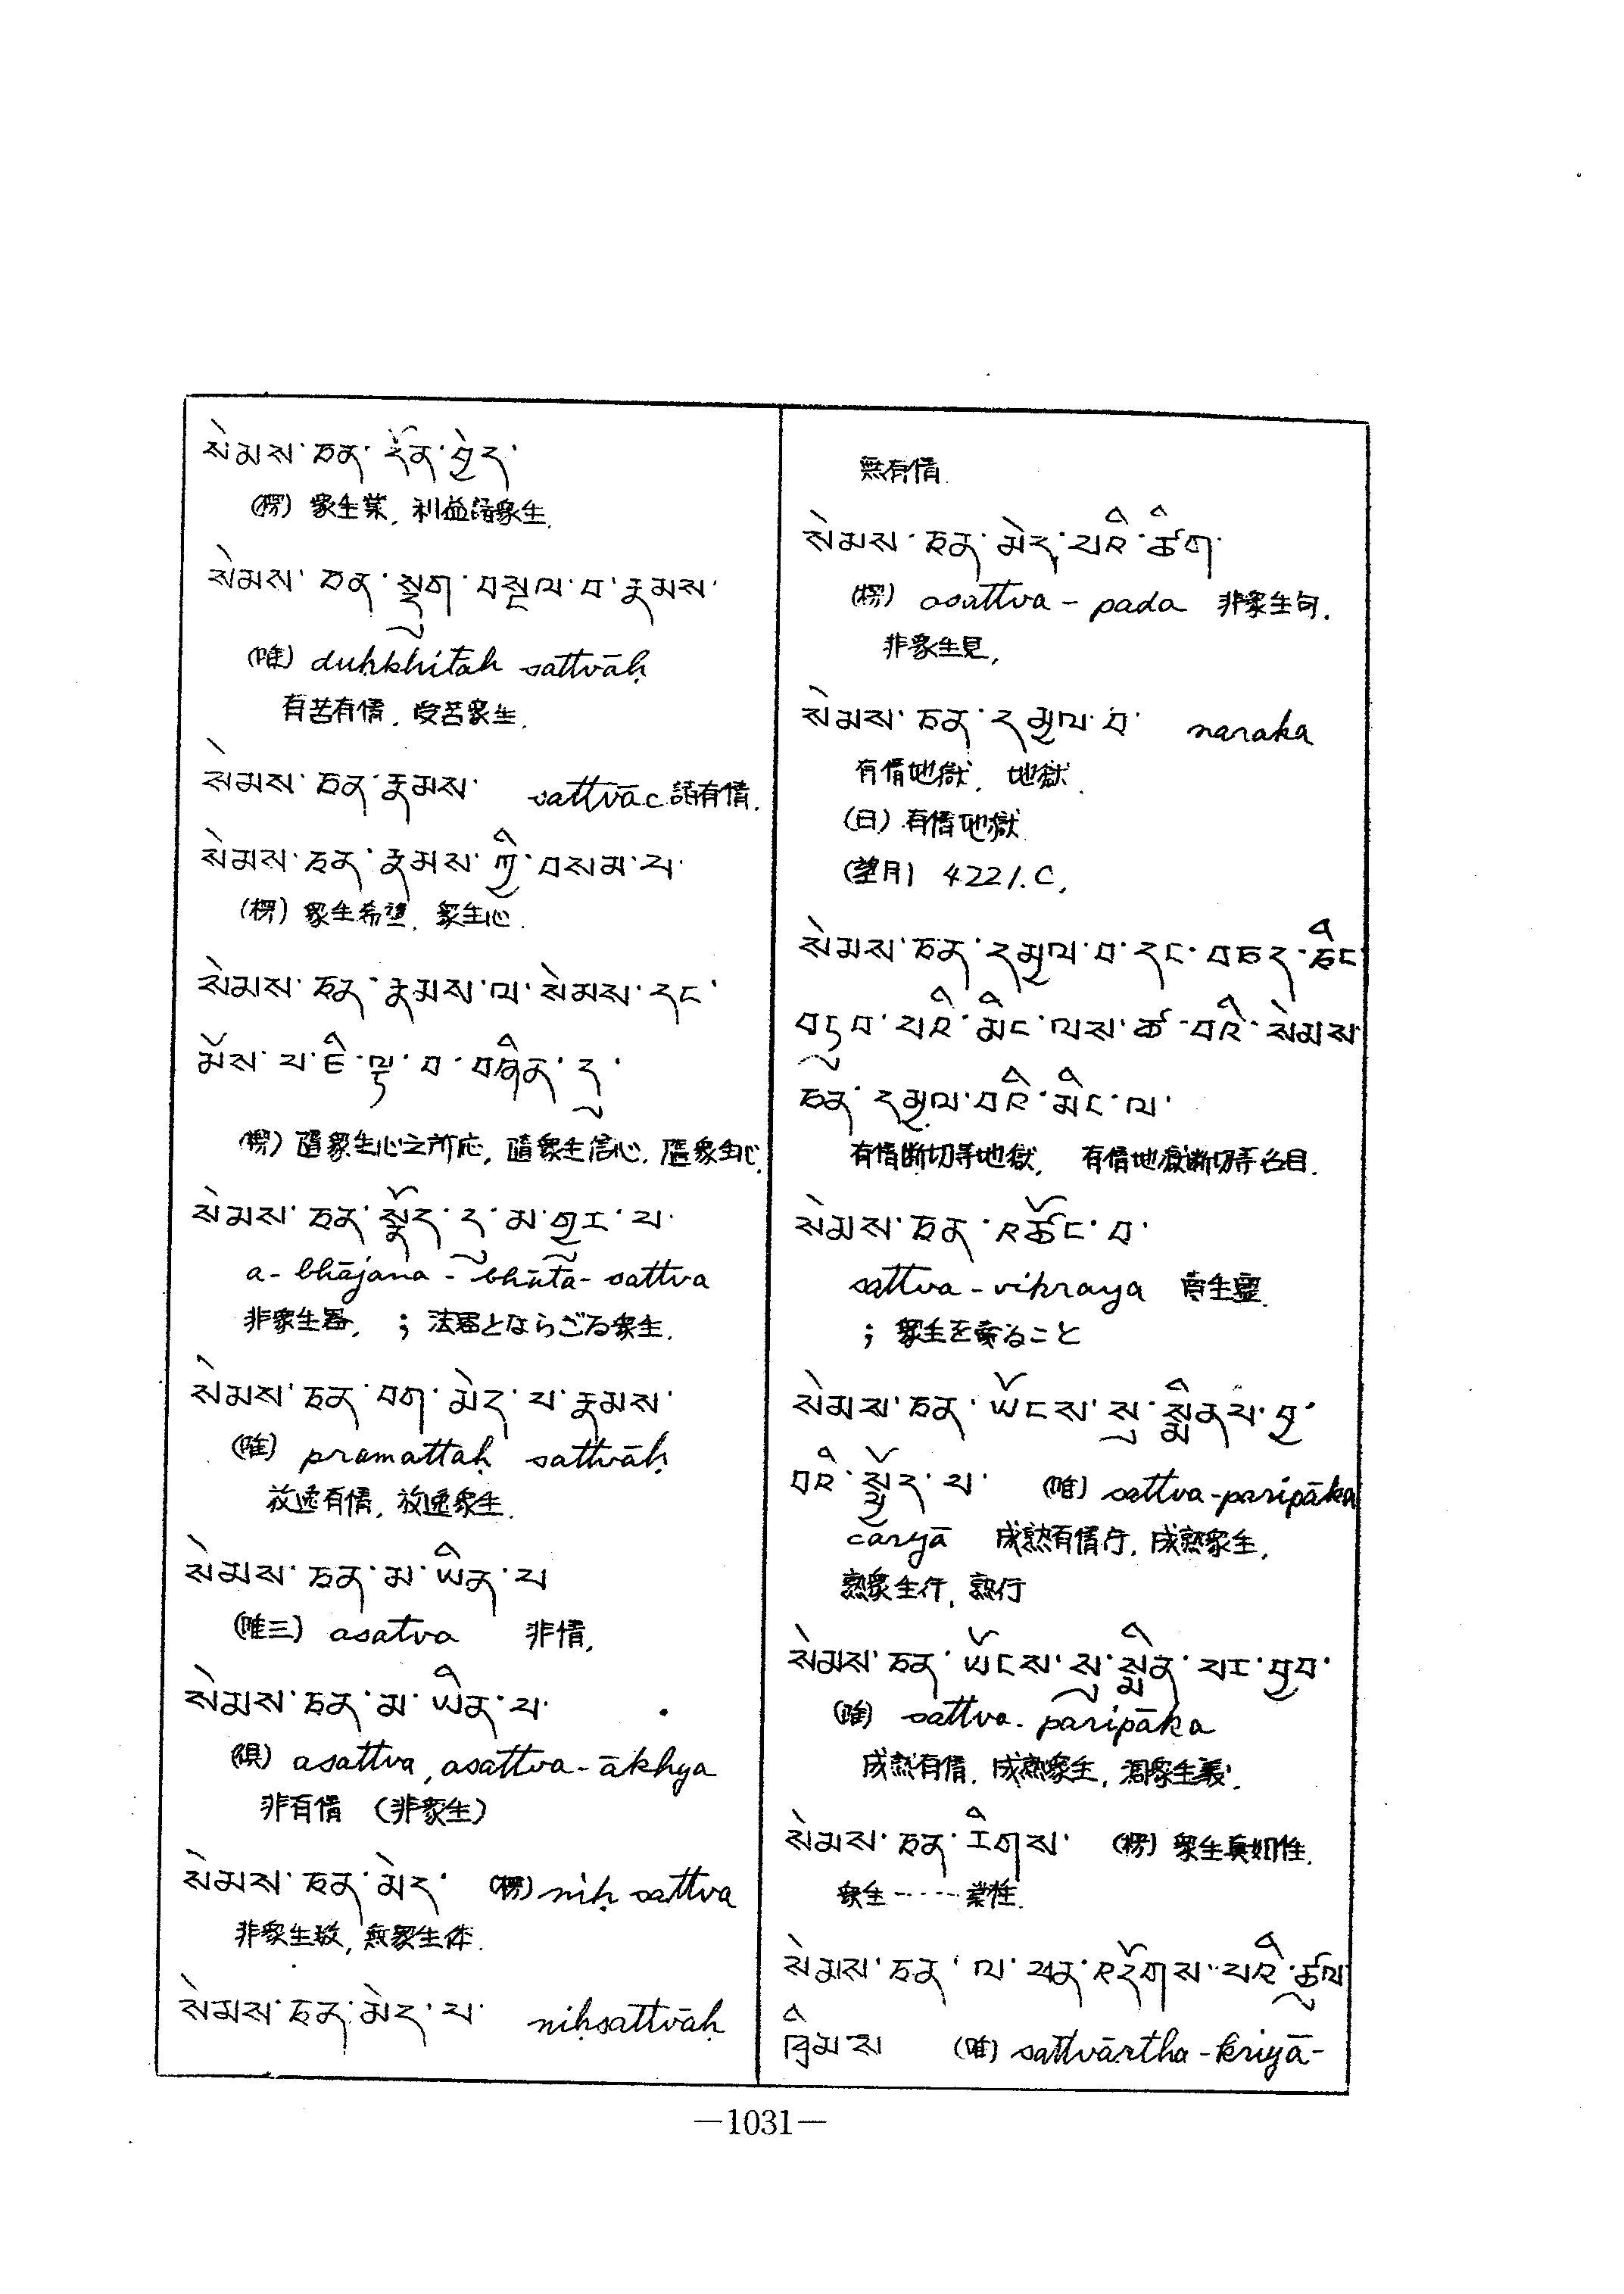 སེམས་ཅན་དོན་བྱེད་
(楞) 衆生業, 利益諸衆生.
སེམས་ཅན་སྡུག་བསྔལ་བ་རྣམས་
(唯) duḥkhitāh sattvāḥ
有苦有情. 受苦衆生.
སེམས་ཅན་རྣམས་ sattvāc 諸有情.
སེམས་ཅན་རྣམས་ཀྱི་བསམ་པ་
(楞) 衆生希望. 衆生心.
སེམས་ཅན་རྣམས་ལ་སེམས་དང་
མོས་པ་ཇི་ལྟ་བ་བཞིན་དུ་
(楞) 隨衆生心之所応, 隨衆生信心. 隨衆生心.
སེམས་ཅན་སྣོད་དུ་མ་གྱུར་པ་
a-bhājana-bhūta-sattva
非衆生器. ; 法器とならざる衆生.
སེམས་ཅན་བག་མེད་པ་རྣམས་
(唯) pramattaḥ sattvāḥ
放逸有情, 放逸衆生.
སེམས་ཅན་མ་ཡིན་པ
(唯三) asatva 非情,
སེམས་ཅན་མ་ཡིན་པ་
(俱) asattva, asattva-ākhya
非有情 (非衆生)
སེམས་ཅན་མེད་ (楞) niḥ sattva
非衆生故, 無衆生体.
སེམས་ཅན་མེད་པ་ niḥsattvāḥ
無有情.
སེམས་ཅན་མེད་པའི་ཚིག་
(楞) asattva-pada 非衆生句.
非衆生見,
སེམས་ཅན་དམྱལ་བ་ naraka
有情地獄, 地獄.
(日) 有情地獄
(望月) 4221.C,
སེམས་ཅན་དམྱལ་བ་དང་བཅད་ཅིང
བདུབ་པའི་མིང་ལས་ཚ་བའི་སེམས་
ཅན་དམྱལ་བའི་མིང་ལ་
有情断切等地獄, 有情地獄断切等名目.
སེམས་ཅན་འཚོང་བ་
sattva-vikraya 賣生靈.
; 衆生を賣ること
སེམས་ཅན་ཡོངས་སུ་སྨིན་པ་བྱ་
བའི་སྤྱོད་པ་ (唯) sattva-paripāka
caryā 成熟有情行, 成熟衆生,
熟衆生行, 熟行
སེམས་ཅན་ཡོངས་སུ་སྨིན་པར་བྱབ་
(唯) sattva-paripāka
成熟有情, 成熟衆生, 衆生義.
སེམས་ཅན་རིགས་ (楞) 衆生真如性.
衆生‥‥‥業性.
སེམས་ཅན་ལ་ཕན་འདོགས་པའི་ཚུལ
ཁྲིམས (唯) sattvārtha-kriyā-
—1031—